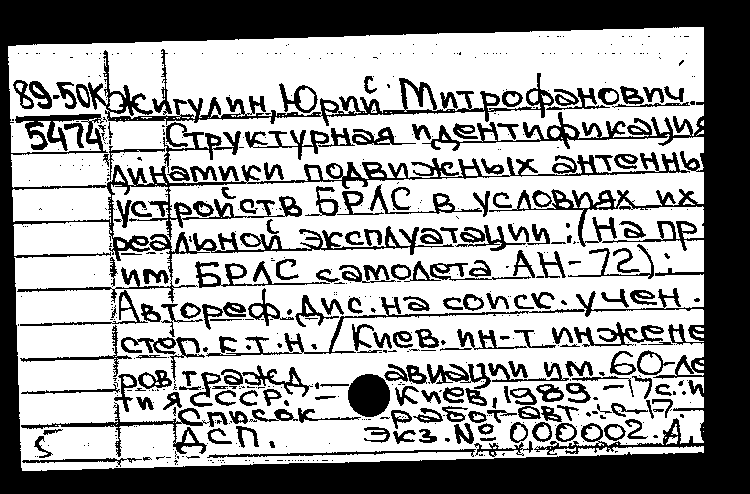 89-50К Жигулин, Юрий Митрофанович.
5474 Структурная идентификация
динамики подвижных антенны
устройств БРЛС в условиях их
реальной эксплуатации: (На пр
им. БРЛС самолета АН-72):
Автореф. дис. на соиск. учен.
степ. к.т.н. / Киев. ин-т инжене
ров гражд. авиации им. 60-ле
тия СССР. — Киев, 1989. — 17с.:и
Список работ авт.: с. 17
5 ДСП. Экз. № 000002. А,